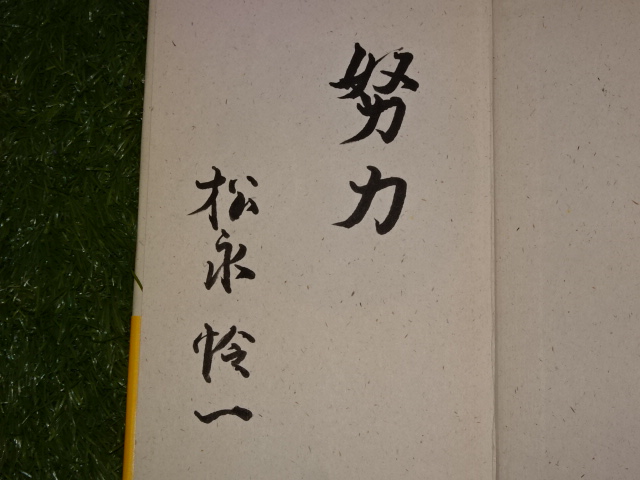 努力
松永怜一